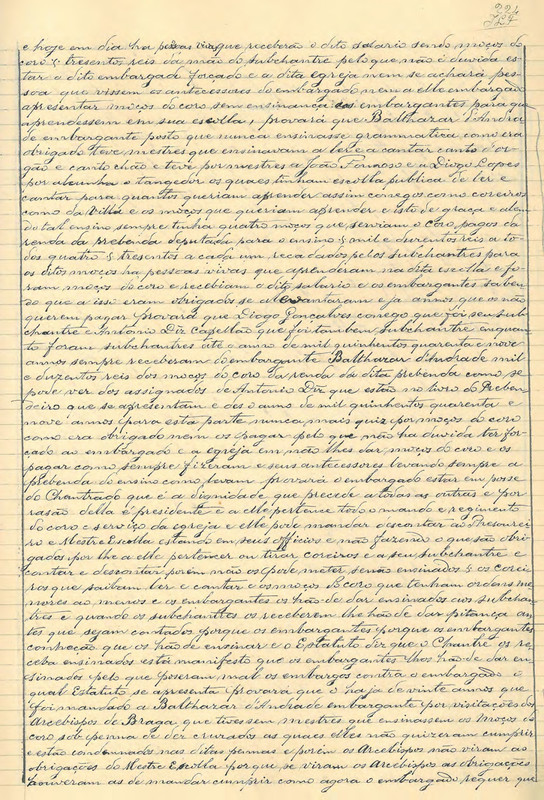 224
e hoje em dia ha pessoas vivas que receberão o dito salario sendo moços do
coro § tresentos reis da mão do subchantre pelo que não é duvida es-
tar o dito embargado forçado e a dita egreja nem se achará pes-
soa que vissem os antecessores do embargado nem a elle embargado
apresentar moços do coro sem ensinança dos embargantes para que
aprendessem em sua escolla, provará que Balthazar d'Andra
de embargante posto que nunca ensinasse grammatica como era
obrigado teve mestres que ensinavam a ler e a cantar canto d'or-
gão e canto chão e teve por mestres a João Fongoso e a Diogo Lopes
por alcunha o tangedor os quaes tinham escolla publica de ler e
cantar para quantos queriam aprender assim conegos como coreiros
como da Villa e os moços que queriam aprender e isto de graça e alem
do tal ensino sempre tinha quatro moços que serviam o coro pagos da
renda da prebenda deputada para o ensino § mil e duzentos reis a to-
dos quatro § tresentos a cada um recadados pelos subchantres para
os ditos moços ha pessoas vivas que aprenderam na dita escolla e fo-
ram moços do coro e recebiam o dito salario e os embargantes saben
do que a isso eram obrigados se alevantaram e ja annos que os não
querem pagar. Provará que Diogo Gonçalves conego que foi seu sub-
chantre e Antonio Diz Capellão que foi tambem subchantre enquan-
to foram subchantres até o anno de mil quinhentos quarenta e nove
annos sempre receberam do embargante Balthazar d'Andrade mil
e duzentos reis dos moços do coro da renda da dita prebenda como se
pode ver dos assignados de Antonio Diz que estão no livro do Preben
deiro que se apresentam e des o anno de mil quinhentos quarenta e
nove annos para esta parte nunca mais quiz por moços do coro
como era obrigado nem os pagar pelo que não ha duvida ter for-
çado ao embargado e a egreja em não lhes dar moços do coro e os
pagar como sempre fizeram e seus antecessores levando sempre a
prebenda do ensino como levam provará o embargado estar em posse
do Chantrado que é a dignidade que precede a todas as outras e por
rasão della é presidente e a elle pertence todo o mando e regimento
do coro e serviço da egreja e elle pode mandar descontar ao Thesourei-
ro e Mestre Escolla estando em seus officios e não fazendo o que são obri-
gados por lhe a elle pertencer ou tirar coreiros e a seu subchantre e
contar e descontar porem não os pode meter senão ensinados § os corei-
ros que saibam ler e cantar e os moços do coro que tenham ordens me
nores ao menos e os embargantes os hão de dar ensinados aos subchan
tres e quando os subchantres os receberem lhe hão de dar pitança an
tes que sejam contados porque os embargantes porque os embargantes
confeção que os hão de ensinar e o Estatuto diz que o Chantre os re-
ceba ensinados está manifesto que os embargantes lhos hão de dar en-
sinados pelo que poseram mal os embargos contra o embargado o
qual Estatuto se apresenta Provará que o ha ja de vinte annos que
foi mandado a Balthazar d'Andrade embargante por visitações dos
Arcebispos de Braga, que tivessem mestres que ensinassem os moços do
coro sob penna de dez cruzados as quaes elles não quizeram cumprir
e estão condemnados nas ditas pennas e porem os Arcebispos não viram as
obrigações do Mestre Escolla porque se viram os Arcebispos as obrigações
houveram as de mandar cumprir como agora o embargado requer que